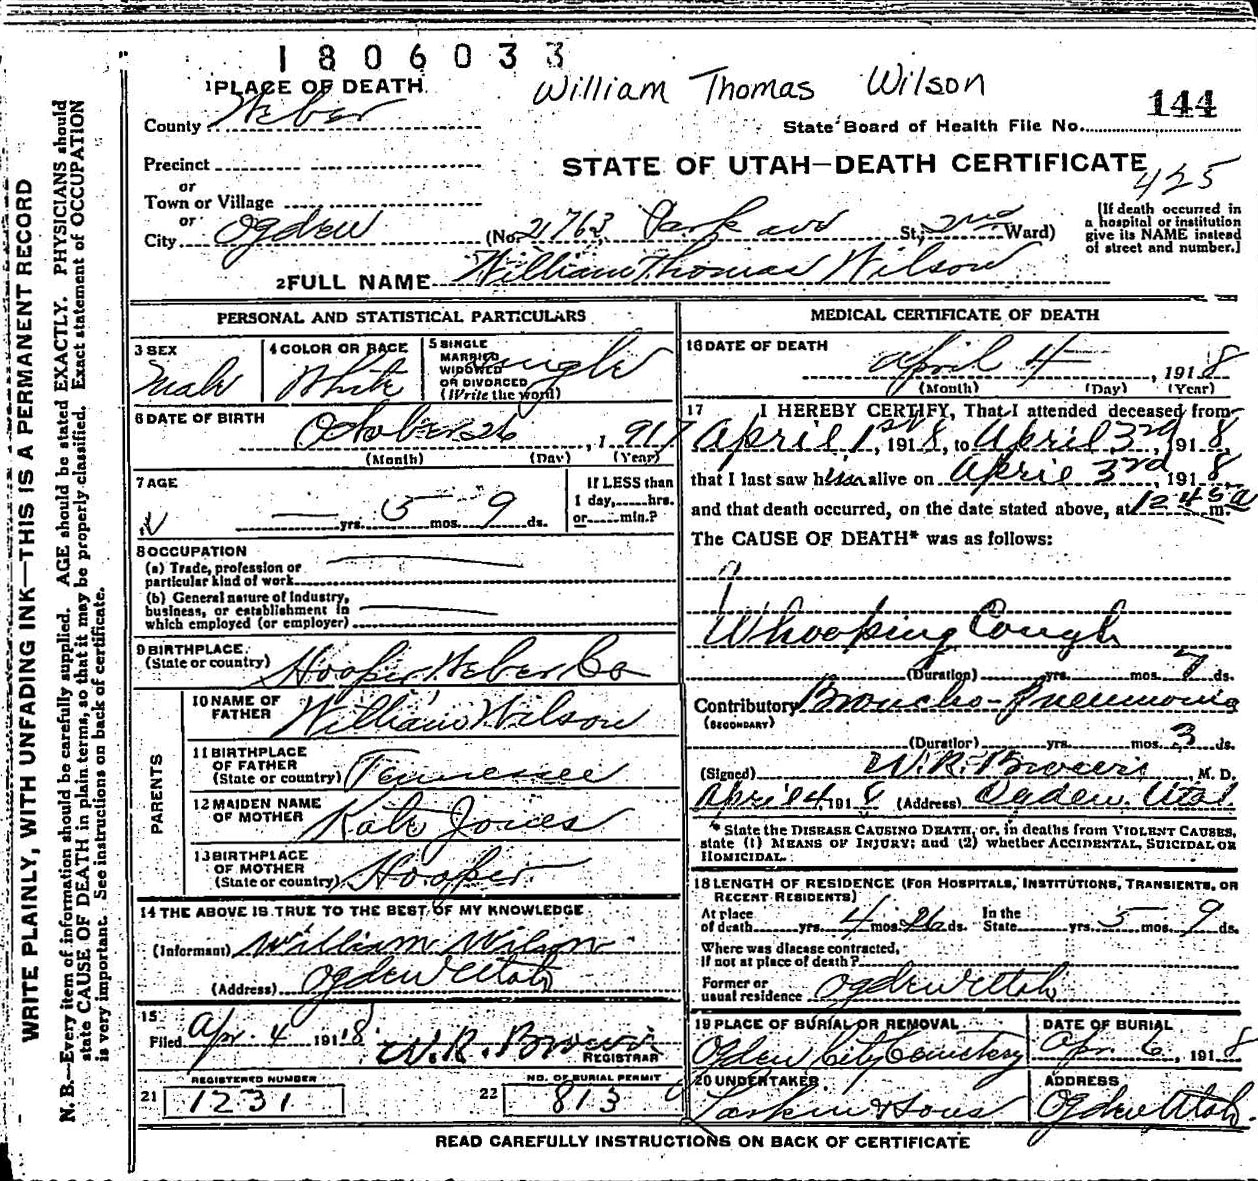 1806033
William Thomas Wilson
144
1 PLACE OF DEATH
County Weber
State Board of Health File No.
Precinct
STATE OF UTAH—DEATH CERTIFICATE
425
or
Town or Village
or
City Ogden (No. 2763 Park ave St., 2nd Ward)
[If death occurred in
a hospital or institution
give its NAME instead
of street and number.]
2 FULL NAME William Thomas Wilson
PERSONAL AND STATISTICAL PARTICULARS
3 SEX
Male
4 COLOR OR RACE
White
5 SINGLE
MARRIED
WIDOWED
OR DIVORCED
(Write the word)
Single
6 DATE OF BIRTH
October 26, 1917
(Month) (Day) (Year)
7 AGE
— yrs. 5 mos. 9 ds.
If LESS than
1 day,......hrs.
or......min.?
8 OCCUPATION
(a) Trade, profession or
particular kind of work
(b) General nature of Industry,
business, or establishment in
which employed (or employer)
9 BIRTHPLACE
(State or country) Hooper Weber Co
PARENTS
10 NAME OF
FATHER William Wilson
11 BIRTHPLACE
OF FATHER
(State or country) Tennessee
12 MAIDEN NAME
OF MOTHER Kate Jones
13 BIRTHPLACE
OF MOTHER
(State or country) Hooper
14 THE ABOVE IS TRUE TO THE BEST OF MY KNOWLEDGE
(Informant) William Wilson
(Address) Ogden Utah
15
Filed Apr. 4 1918 W. R. Brown
REGISTRAR
REGISTERED NUMBER
21 1231
NO. OF BURIAL PERMIT
22 813
MEDICAL CERTIFICATE OF DEATH
16 DATE OF DEATH
April 4, 1918
(Month) (Day) (Year)
17 I HEREBY CERTIFY, That I attended deceased from
April 1st, 1918, to April 3rd, 1918
that I last saw him alive on April 3rd, 1918
and that death occurred, on the date stated above, at 1245 a m.
The CAUSE OF DEATH* was as follows:
Whooping Cough
(Duration) yrs. mos. 7 ds.
Contributory Broncho-Pneumonia
(SECONDARY)
(Duration) yrs. mos. 3 ds.
(Signed) W. R. Brown, M. D.
April 4 1918 (Address) Ogden Utah
* State the DISEASE CAUSING DEATH, or, in deaths from VIOLENT CAUSES,
state (1) MEANS OF INJURY; and (2) whether ACCIDENTAL, SUICIDAL OR
HOMICIDAL.
18 LENGTH OF RESIDENCE (FOR HOSPITALS, INSTITUTIONS, TRANSIENTS, OR
RECENT RESIDENTS)
At place
of death yrs. 4 mos. 26 ds. In the
State yrs. 5 mos. 9 ds.
Where was disease contracted,
if not at place of death?
Former or
usual residence Ogden Utah
19 PLACE OF BURIAL OR REMOVAL
Ogden City Cemetery
DATE OF BURIAL
Apr. 6, 1918
20 UNDERTAKER
Larkin & Sons
ADDRESS
Ogden Utah
READ CAREFULLY INSTRUCTIONS ON BACK OF CERTIFICATE
WRITE PLAINLY, WITH UNFADING INK—THIS IS A PERMANENT RECORD
N. B.—Every item of information should be carefully supplied. AGE should be stated EXACTLY. PHYSICIANS should
state CAUSE OF DEATH in plain terms, so that it may be properly classified. Exact statement of OCCUPATION
is very important. See instructions on back of certificate.